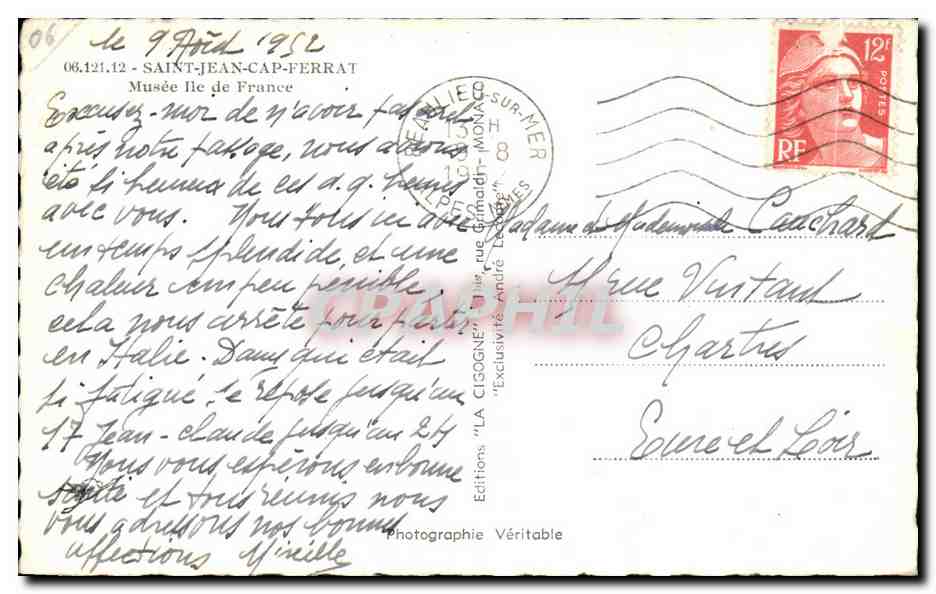 06
le 9 Août 1952
06.121.12 - SAINT-JEAN-CAP-FERRAT
Musée Ile de France
Excusez-moi de n'avoir pas écrit
après notre passage, nous avons
été si heureux de ces q.q. heures
avec vous. Nous sommes ici avec
un temps splendide et une
chaleur un peu pénible,
cela nous arrête pour partir
en Italie. Dany qui était
si fatigué, se repose jusqu'au
17 Jean-claude jusqu'au 24
Nous vous espérons en bonne
santé et tous réunis nous
vous adressons nos bonnes
affections Mireille
BEAULIEU-SUR-MER
13 H
9 - 8
1952
ALPES MMES
12F
POSTES
RF
Madame et Mademoiselle Cauchard
rue
Chartres
Eure et Loir
Editions "LA CIGOGNE" rue Grimaldi - MONACO
"Exclusivité André Leconte"
Photographie Véritable
CPAPHIL